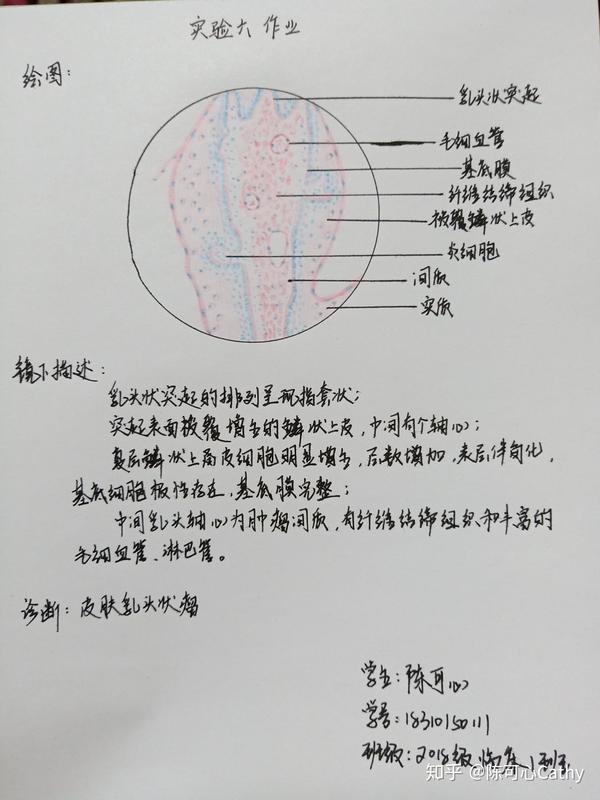 实验六 作业
绘图:
乳头状突起
毛细血管
基底膜
纤维结缔组织
被覆鳞状上皮
炎细胞
间质
实质
镜下描述:
乳头状突起的排列呈现指套状;
突起表面被覆增生的鳞状上皮,中间有个轴心;
复层鳞状上局皮细胞明显增生,层数增加,表层伴角化,
基底细胞极性存在,基底膜完整;
中间乳头轴心为肿瘤间质,有纤维结缔组织和丰富的
毛细血管、淋巴管。
诊断: 皮肤乳头状瘤
学生: 陈可心
学号: 18310150111
班级: 2018级 临床
知乎 @陈可心Cathy